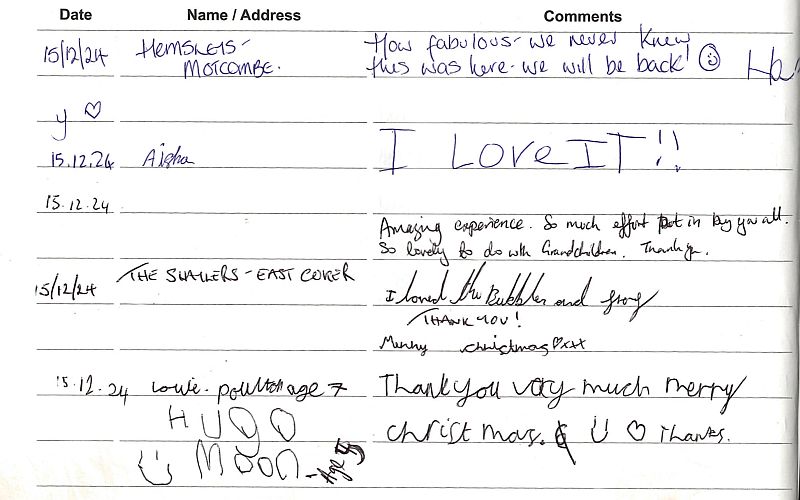 Date Name / Address Comments
15/12/24 HEMSLEYS - How fabulous - we never knew
MOTCOMBE. this was here - we will be back! Ha
y
15.12.24 Aisha I LOVE IT!!
15.12.24
Amazing experience. So much effort put in by you all.
So lovely to do with Grandchildren. Thank you.
15/12/24 THE SLAYLERS - EAST COKER
I loved the Bubbles and frog
THANK YOU!
Merry christmas xxx
15.12.24 Louie. poulton age 7 Thank you very much merry
HUGO christmas. Thanks.
MOON - Age 5